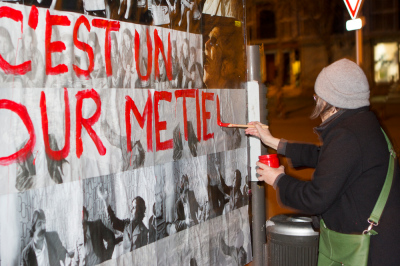 C'EST UN
OUR METIER